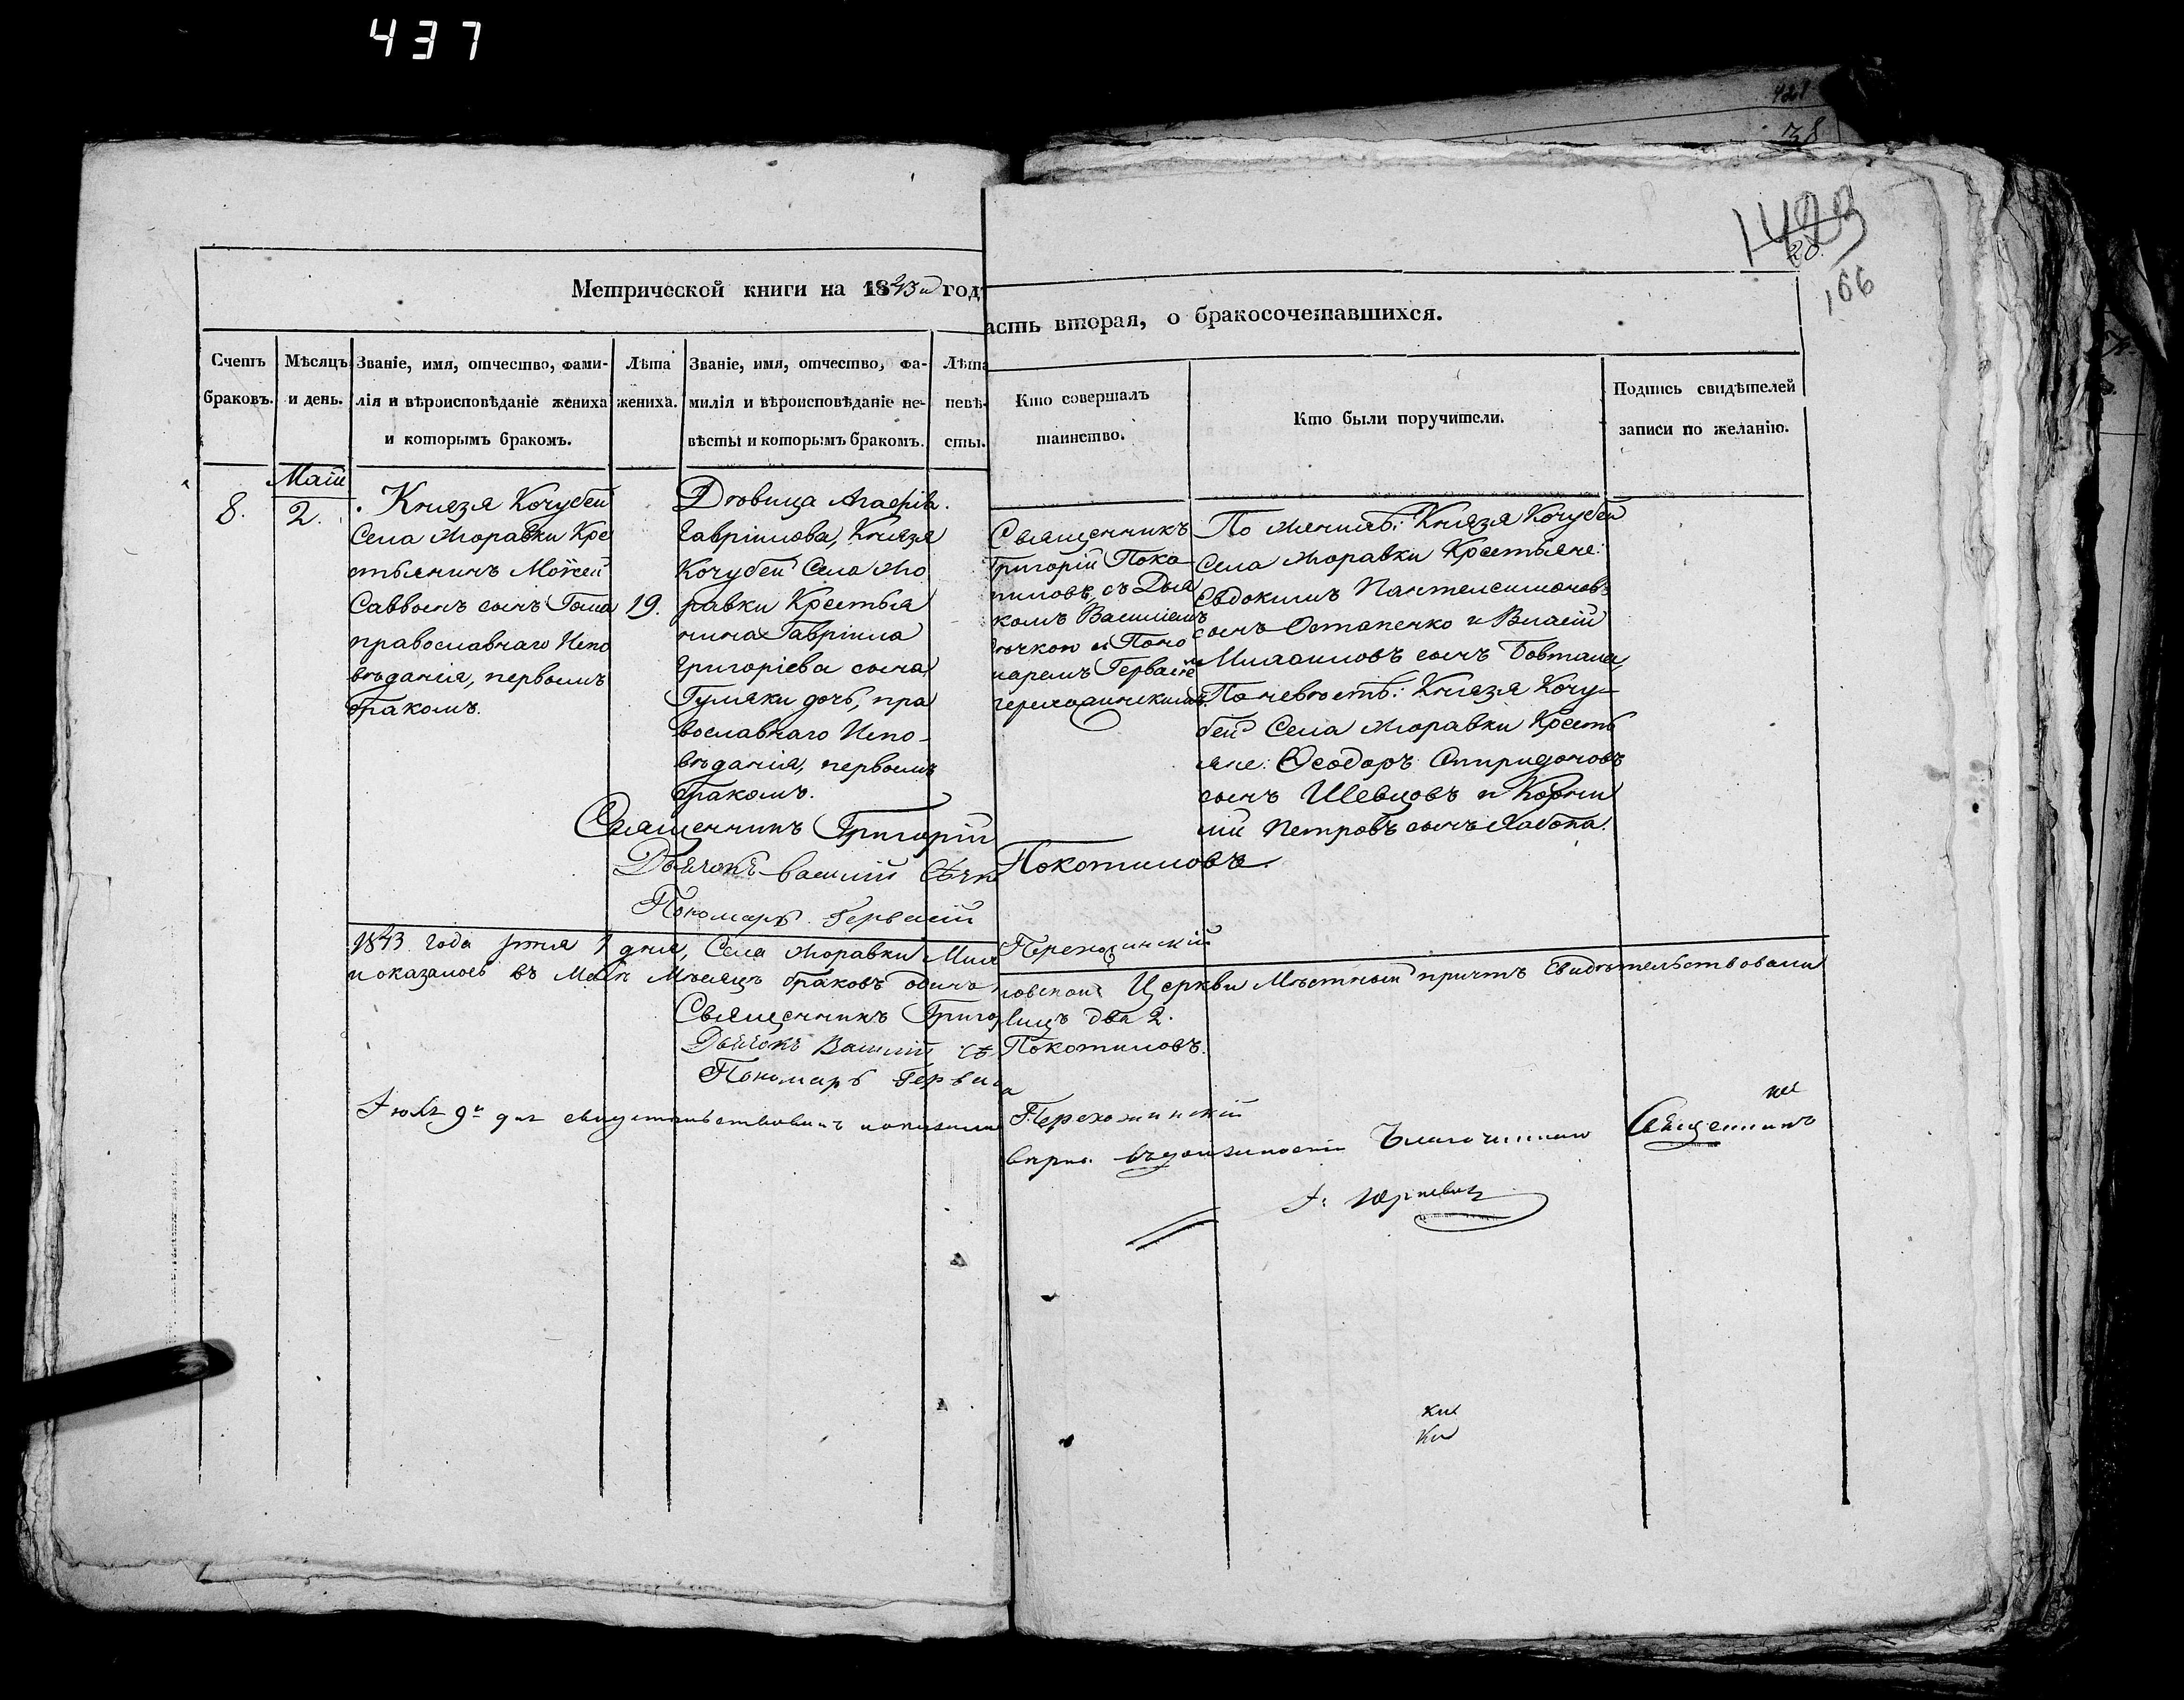 437
421
38
1423
20.
166
Метрической книги на 1843й год
асть вторая, о бракосочетавшихся.
Счетъ браковъ.
Мѣсяцъ и день.
Званіе, имя, отчество, фами-
лія и вѣроисповѣданіе жениха
и которымъ бракомъ.
Лѣта
жениха.
Званіе, имя, отчество, фа-
милія и вѣроисповѣданіе не-
вѣсты и которымъ бракомъ.
Лѣта
невѣ-
сты.
Кто совершалъ
таинство.
Кто были поручители.
Подпись свидѣтелей
записи по желанію.
8.
Маій
2.
Князя Кочубей
Села Жоравки Кре
стьянинъ Моѵсей
Саввоенъ сынъ Гома
православнаго Испо
вѣданія, первымъ
бракомъ.
19.
Дѣвица Агафія
Гавріилова, Князя
Кочубей Села Жо
равки Крестья
нина Гавріила
Григоріева сына
Гумяки дочь, пра
вославнаго Испо-
вѣданія, первымъ
бракомъ.
Священникъ
Григорій Поко
тиловъ, съ Дья
комъ Василіемъ
и Поно
маремъ Гервасіе
По женихѣ: Князя Кочубей
Села Жоравки Крестьяне:
Евдокимъ Пантелеимоновъ
сынъ Остапенко и Власій
Михаиловъ сынъ Бовтана,
По невѣстѣ: Князя Кочу-
бей Села Жоравки Кресть
яне: Ѳеодоръ Спиридоновъ
сынъ Шевцовъ и Корни
лій Петровъ сынъ Хабота.
Священникъ Григорій Покотиловъ.
Дьячокъ Василій
Пономарь Гервасій Перехожинскій
1843 года 1 дня, Села Жоравки Миха иловской Церкви Мѣстный причтъ свидѣтельствовали
и оказалось въ Маѣ Мѣсяцѣ браковъ одинъ лицъ два 2.
Священникъ Григо Покотиловъ.
Дьячокъ Василій
Пономарь Герваси Перехожинскій
Іюля 9го дня свидетельствовалъ и показаны верно. въ должности Благочиннаго Священникъ
І. Юркевичъ